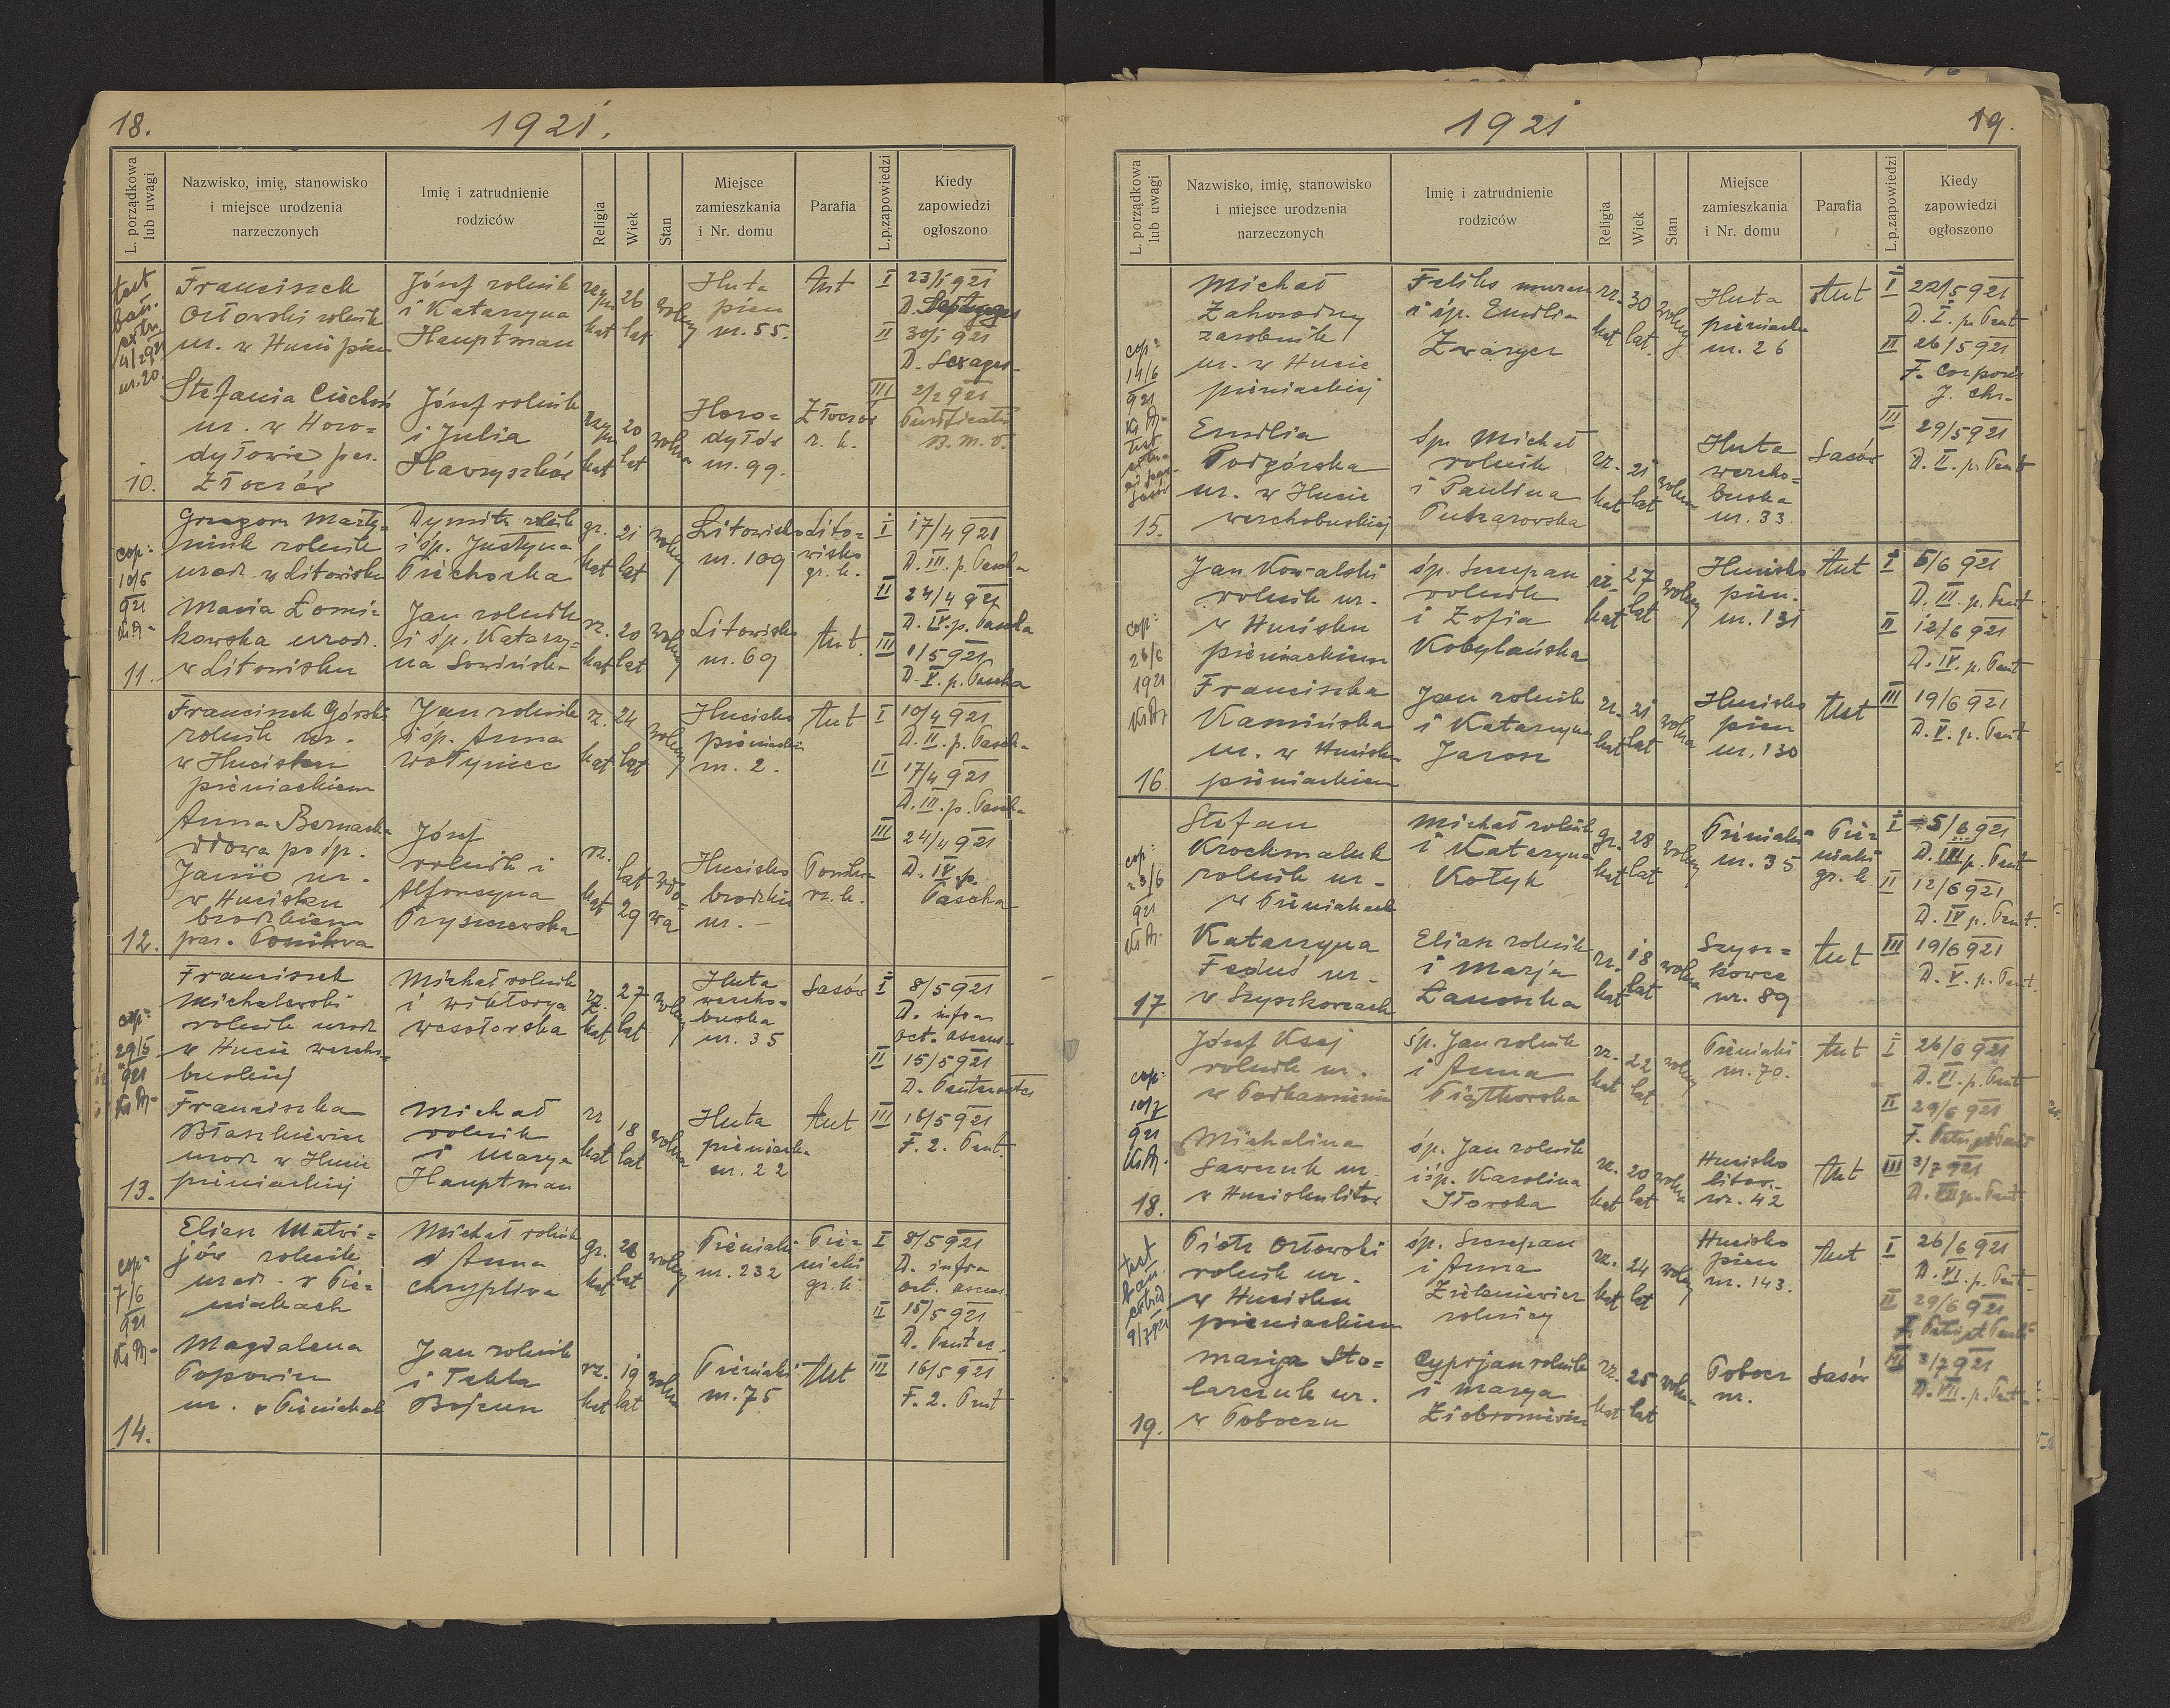 18.
1921.
L. porządkowa
lub uwagi
Nazwisko, imię, stanowisko
i miejsce urodzenia
narzeczonych
Imię i zatrudnienie
rodziców
Religia
Wiek
Stan
Miejsce
zamieszkania
i Nr. domu
Parafia
L.p.zapowiedzi
Kiedy
zapowiedzi
ogłoszono
test
ban.
extr.
4/2921
nr. 20.
10.
Franciszek
Orłowski rolnik
ur. w Hucie pien
Józef rolnik
i Katarzyna
Hauptman
rzym
kat
26
lat
wolny
Huta
pien
nr. 55.
Aut
I 23/1 921
D. Septuages
II 30/1 921
D. Sexages-
Stefania Ciechoń
ur. w Horo=
dyłowie par.
Złoczów
Józef rolnik
i Julia
Hawryszków
rzym
kat
20
lat
wolna
Horo=
dyłów
nr. 99.
Złoczów
r. k.
III 2/2 921
Purificatio
B. M. V.
cop:
10/5
921
11.
Grzegorz Marty=
niuk rolnik
urodz. w Litowisku
Dymitr rolnik
i śp. Justyna
Piechocka
gr.
kat
21
lat
wolny
Litowisko
nr. 109
Lito=
wisko
gr. k.
I 17/4 921
D. III. p. Pascha
II 24/4 921
D. IV. p. Pascha
Maria Łomi=
kowska urodz.
w Litowisku
Jan rolnik
i śp. Katarzy=
na Sowińska
rz.
kat
20
lat
wolny
Litowisko
nr. 69
Aut.
III 1/5 921
D. V. p. Pascha
12.
Franciszek Górski
rolnik ur.
w Hucisku
pieniackiem
Jan rolnik
i śp. Anna
Wołyniec
rz.
kat
24
lat
wolny
Hucisko
pieniackie
nr. 2.
Aut
I 10/4 921
D. II. p. Pascha
II 17/4 921
D. III. p. Pascha
Anna Bernacka
wdowa po śp.
Janie ur.
w Hucisku
brodzkiem
par. Ponikwa
Józef
rolnik i
Alfonsyna
Pryszczewska
rz.
kat
lat
29
wdo=
wa
Hucisko
brodzkie
nr. -
Ponikwa
rz. k.
III 24/4 921
D. IV. p.
Pascha
cop:
29/5
921
13.
Franciszek
Michalewski
rolnik urodz
w Hucie wercho=
buskiej
Michał rolnik
i Wiktorya
Wesołowska
rz.
kat
27
lat
wolny
Huta
wercho=
buska
nr. 35
Sasów
I 8/5 921
D. infra
oct. ascens-
II 15/5 921
D. Pentecostes
Franciszka
Błaszkiewicz
urodz w Hucie
pieniackiej
Michał
rolnik
i Marya
Hauptman
rz
kat
18
lat
wolna
Huta
pieniacka
nr. 22
Aut
III 16/5 921
F. 2. Pent.
cop:
7/6
921
14.
Eliasz Matwi=
jów rolnik
urodz. w Pie=
niakach
Michał rolnik
i Anna
Chrypliwa
gr.
kat
lat
wolny
Pieniaki
nr. 232
Pie=
niaki
gr. k.
I 8/5 921
D. infra
oct. ascens.
II 15/5 921
D. Pentec.
Magdalena
Popowicz
ur. w Pieniakach
Jan rolnik
i Tekla
Bojczun
rz.
kat
19
lat
wolna
Pieniaki
nr. 75
Aut
III 16/5 921
F. 2. Pent
1921
19.
L. porządkowa
lub uwagi
Nazwisko, imię, stanowisko
i miejsce urodzenia
narzeczonych
Imię i zatrudnienie
rodziców
Religia
Wiek
Stan
Miejsce
zamieszkania
i Nr. domu
Parafia
L.p.zapowiedzi
Kiedy
zapowiedzi
ogłoszono
cop:
14/6
921
test
Sasów
15.
Michał
Zahorodny
zarobnik
ur. w Hucie
pieniackiej
Feliks murarz
i śp. Emilia
Zwarycz
rz.
kat
30
lat.
wolny
Huta
pieniacka
nr. 26
Aut
I 22/5 921
D. I. p. Pent
II 26/5 921
F. Corporis
J. Chr-
Emilia
Podgórska
ur. w Hucie
werchobuskiej
Śp. Michał
rolnik
i Paulina
Puzarowska
rz.
kat
21
lat
wolna
Huta
wercho=
buska
nr. 33.
Sasów
III 29/5 921
D. II. p. Pent
cop:
26/6
1921
16
Jan Kowalski
rolnik ur.
w Hucisku
pieniackiem
śp. Szczepan
rolnik
i Zofia
Kobylańska
rz.
kat
27
lat
wolny
Hucisko
pien.
nr. 131
Aut
I 5/6 921
D. III. p. Pent
II 12/6 921
D. IV. p. Pent
Franciszka
Kamińska
ur. w Hucisku
pieniackiem
Jan rolnik
i Katarzyna
Jarosz
rz.
kat
21
lat
wolna
Hucisko
pien
nr. 130
Aut
III 19/6 921
D. V. p. Pent
cop:
23/6
921
17
Stefan
Krochmaluk
rolnik ur.
w Pieniakach
Michał rolnik
i Katarzyna
Kotyk
gr.
kat
28
lat
wolny
Pieniaki
nr. 35
Pie=
niaki
gr. k.
I 5/6 921
D. III p. Pent
II 12/6 921
D. IV p. Pent.
Katarzyna
Feduś ur.
w Szyszkowcach
Eliasz rolnik
i Marja
Łanoszka
rz.
kat
18
lat
wolna
Szysz=
kowce
nr. 89
Aut
III 19/6 921
D. V. p. Pent.
cop:
10/7
921
18.
Józef Ksej
rolnik ur.
w Podkamieniu
śp. Jan rolnik
i Anna
Piątkowska
rz.
kat
22
lat
wolny
Pieniaki
nr. 70.
Aut
I 26/6 921
D. VI. p. Pent
II 29/6 921
F. Petri et Pauli
Michalina
Sawczuk ur.
w Hucisku litow
śp. Jan rolnik
i śp. Karolina
Iłowska
rz.
kat
20
lat
wolna
Hucisko
litow.
nr. 42
Aut
III 3/7 921
D. VII p. Pent.
test
ban.
extrad
9/7921
19.
Piotr Orłowski
rolnik ur.
w Hucisku
pieniackiem
śp. Szczepan
i Anna
Zieleniewicz
rolnicy
rz.
kat
24
lat
wolny
Hucisko
pien
nr. 143.
Aut
I 26/6 921
D. VI. p. Pent.
II 29/6 921
F. Petri et Pauli
Marja Sto=
larczuk ur.
w Poboczu
Cyprjan rolnik
i Marya
Ziobronicicz
rz.
kat
25
lat
wolna
Pobocz
nr.
Sasów
III 3/7 921
D. VII. p. Pent.